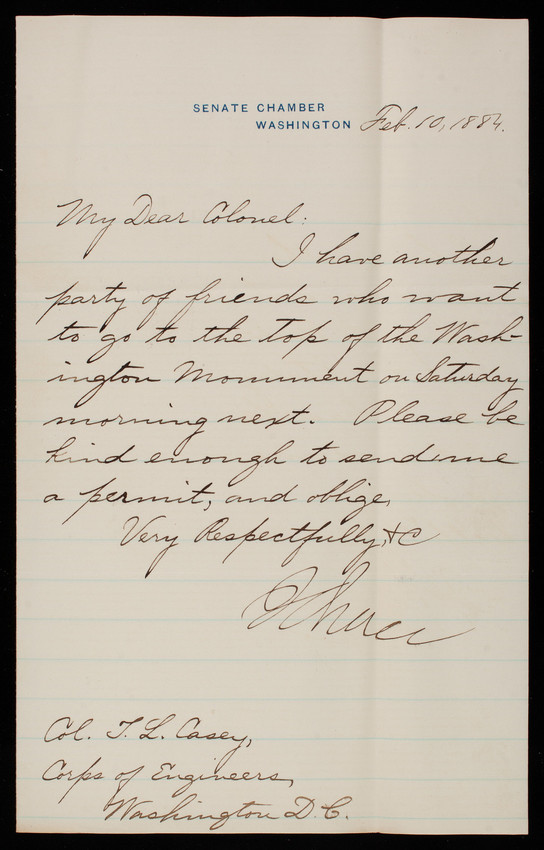 SENATE CHAMBER
WASHINGTON Feb. 10, 1884.
My Dear Colonel:
I have another
party of friends who want
to go to the top of the Wash-
ington Monument on Saturday
morning next. Please be
kind enough to send me
a permit, and oblige,
Very Respectfully, &C
Col. T. L. Casey,
Corps of Engineers,
Washington D.C.